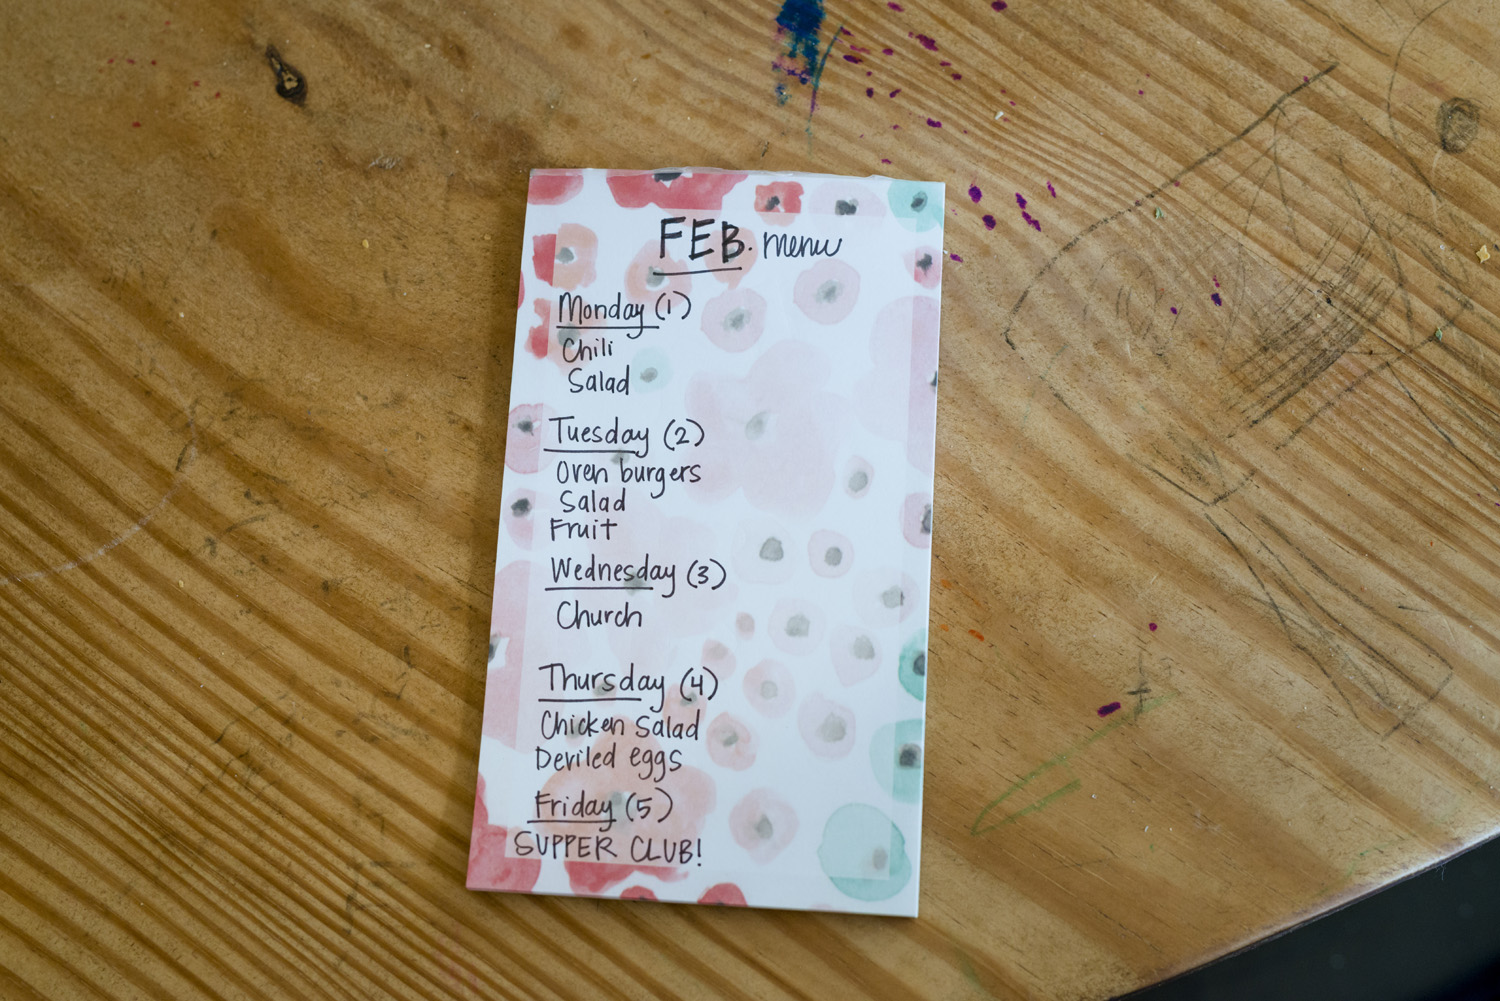 FEB. menu
Monday (1)
Chili
Salad
Tuesday (2)
Oven burgers
Salad
Fruit
Wednesday (3)
Church
Thursday (4)
Chicken Salad
Deviled eggs
Friday (5)
SUPPER CLUB!